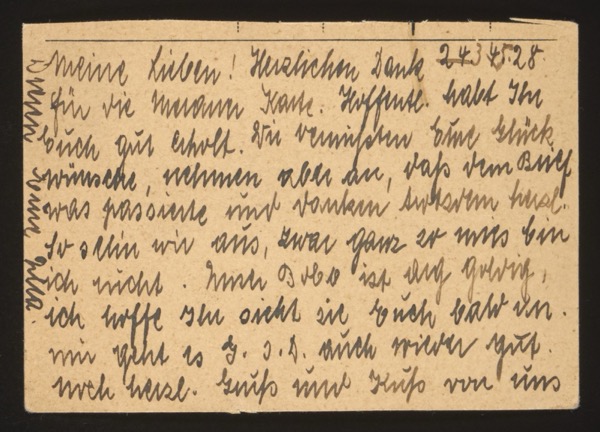 Meine Lieben! Herzlichen Dank
für die Meraner Karte. Hoffentl. habt Ihr
Euch gut erholt. Wir vermissten Eure Glück
wünsche, nehmen aber an, daß dem Brief
was passierte und danken trotzdem herzl.
So sehn wir aus, zwar ganz so mies bin
ich nicht. Bobo ist arg goldig,
ich hoffe Ihr sieht sie Euch bald an.
mir geht es G. s. D. auch wieder gut.
noch herzl. Gruß und Kuß von uns